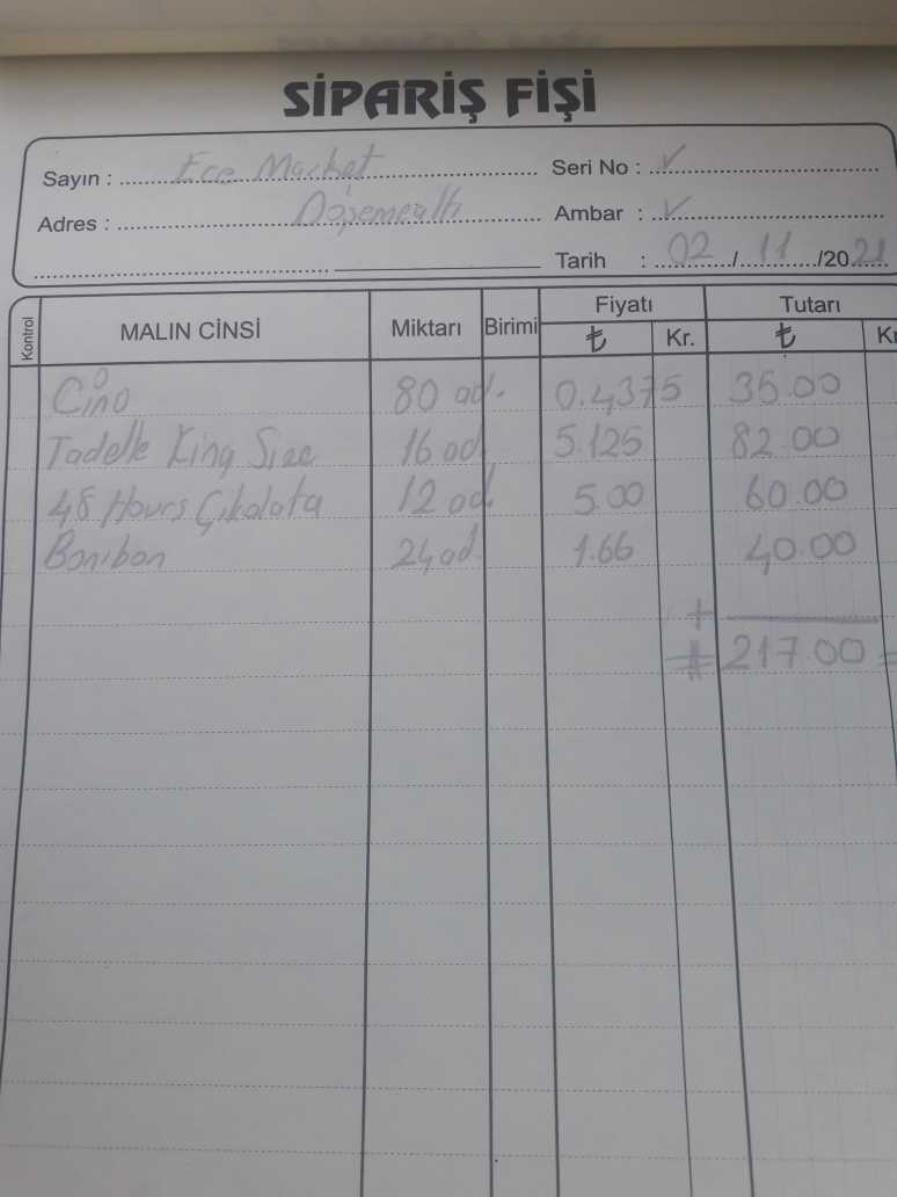 SİPARİŞ FİŞİ
Sayın : Ece Market
Seri No :
Adres : Döşemealtı
Ambar :
Tarih : 02/11/2021
Kontrol MALIN CİNSİ Miktarı Birimi Fiyatı ₺ Kr. Tutarı ₺ Kr
Cino 80 ad. 0.4375 35.00
Tadelle King Size 16 ad. 5.125 82.00
48 Hours Çikolata 12 ad. 5.00 60.00
Bonibon 24 ad. 1.66 40.00
+
# 217.00 =